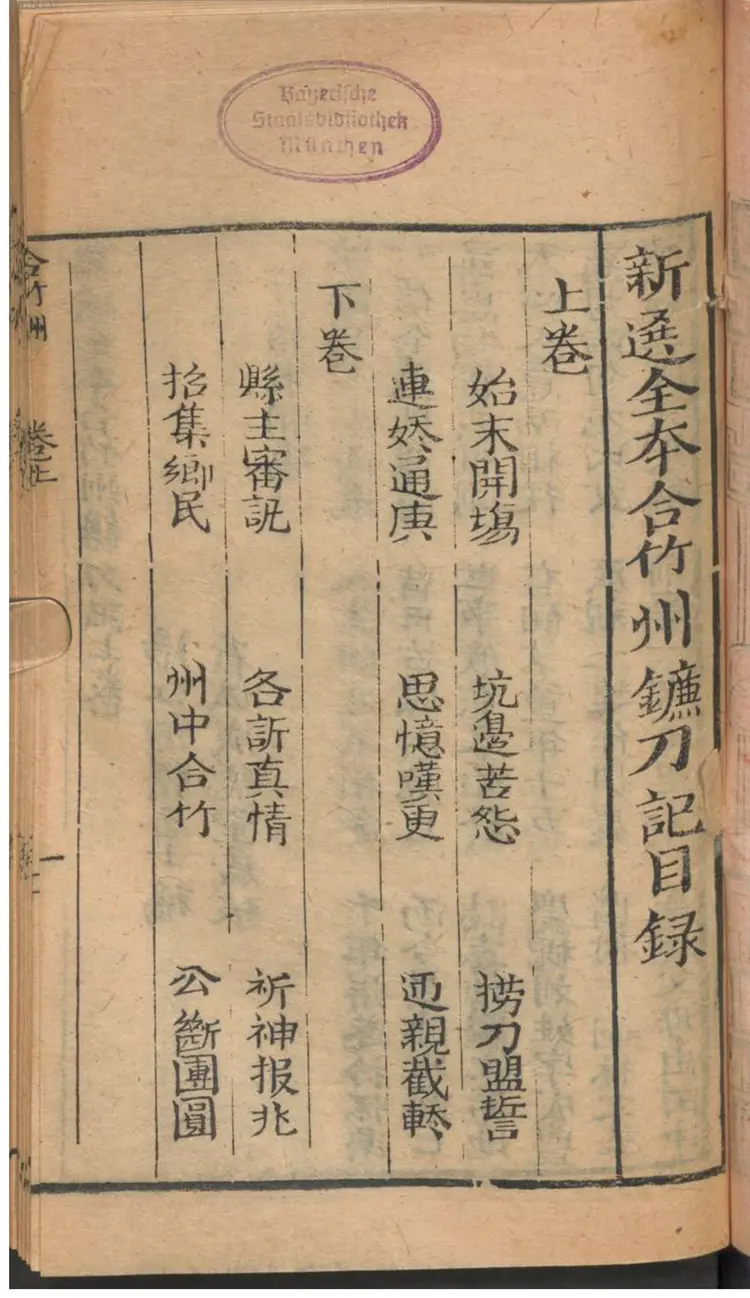 Bayerische
Staatsbibliothek
München
新選全本合竹州鐮刀記目録
上卷
始末開塲 坑邊苦怨 撈刀盟誓
連妖通庚 思憶嘆更 迊親截轎
下卷
縣主審訊 各訴真情 祈神报兆
招集鄉民 州中合竹 公斷團圓
合竹州 卷上 一